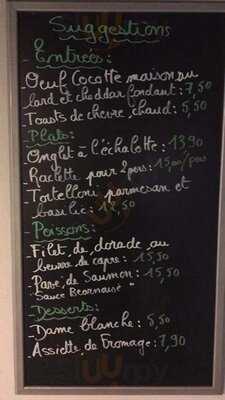 Suggestions
Entrées:
- Oeuf Cocotte maison au
lard et cheddar fondant: 7,50
- Toasts de chevre chaud: 5,50
Plats:
- Onglet à l'échalotte: 13,90
- Raclette pour 2 pers: 15,00/pers
- Tortelloni parmesan et
basilic:
Poissons:
- Filet de dorade au
beurre de capre: 15,50
- Pavé de Saumon: 15,50
Sauce Bearnaise
Desserts:
- Dame blanche: 5,50
- Assiette de Fromage: 7,90